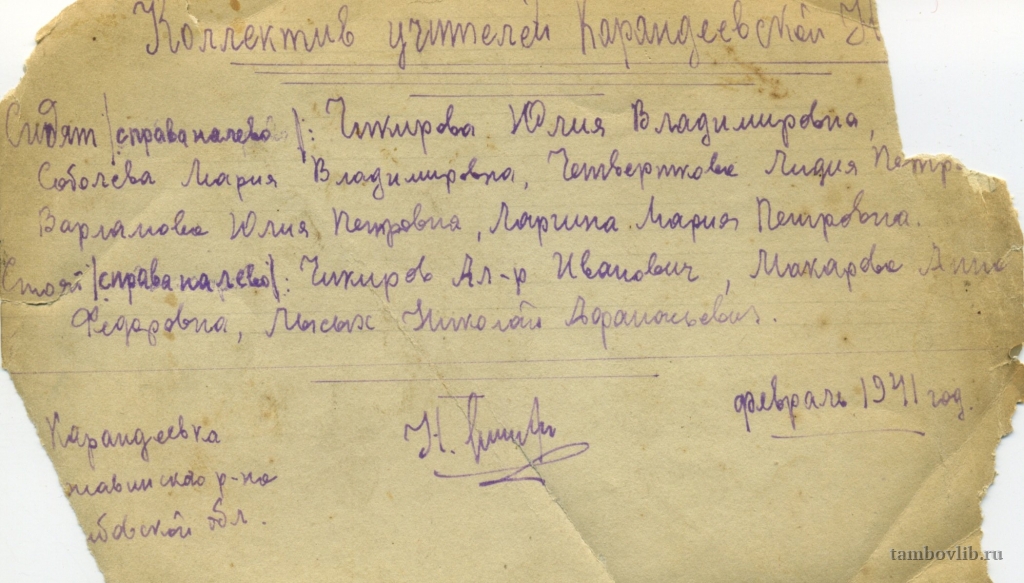 Коллектив учителей Карандеевской Н
Сидят /справа налево/: Чикирова Юлия Владимировна,
Соболева Мария Владимировна, Четверткова Лидия Петр
Варламова Юлия Петровна, Ларгина Мария Петровна.
Стоят /справа налево/: Чикиров Ал-р Иванович, Макарова Анна
Федоровна, Мысых Николай Афанасьевич.
февраль 1941 год.
Карандеевка
жавинского р-на
бовской обл.
Н.
tambovlib.ru